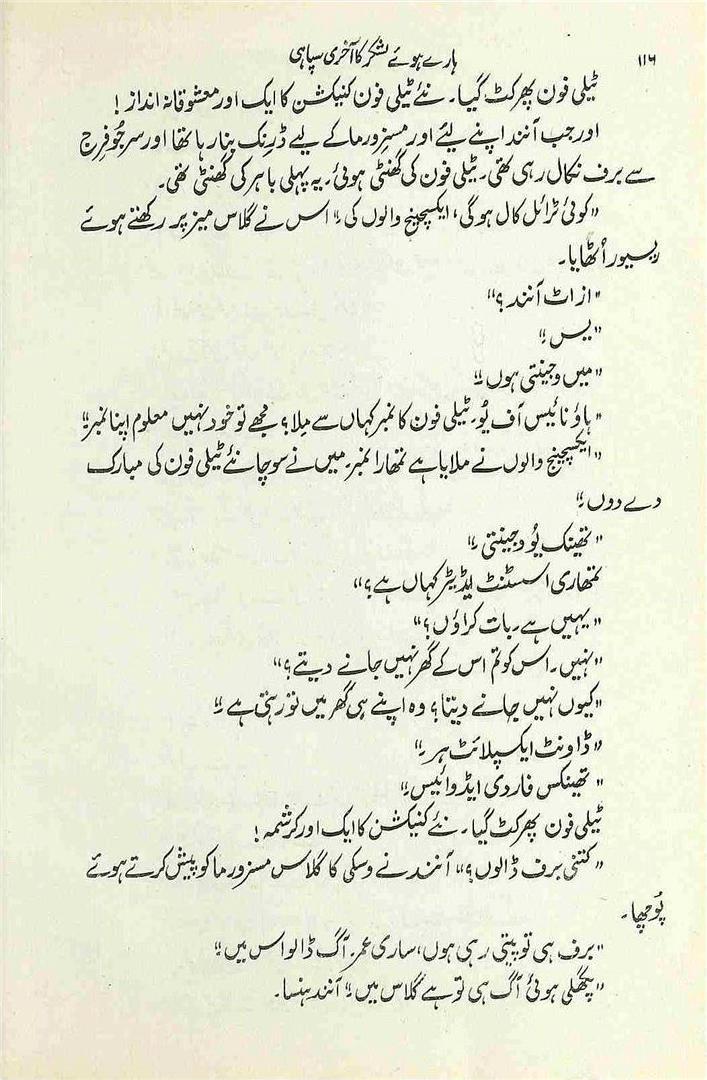 ۱۱۶
ہارے ہوئے لشکر کا آخری سپاہی
ٹیلی فون پھر کٹ گیا۔ نئے ٹیلی فون کنیکشن کا ایک اور معشوقانہ انداز!
اور جب آنند اپنے لیئے اور مسز ورما کے لیے ڈرنک بنا رہا تھا اور سرجُو فرِج
سے برف نکال رہی تھی۔ ٹیلی فون کی گھنٹی ہوئی۔ یہ پہلی باہر کی گھنٹی تھی۔
"کوئی ٹرائل کال ہوگی، ایکسچینج والوں کی۔" اس نے گلاس میز پر رکھتے ہوئے
ریسیور اُٹھایا۔
"از اٹ آنند؟"
"یس۔"
"میں وجینتی ہوں۔"
"ہاؤ نائیس آف یُو۔ ٹیلی فون کا نمبر کہاں سے مِلا؟ مجھے تو خود نہیں معلوم اپنا نمبر۔"
"ایکسچینج والوں نے ملایا ہے تمھارا نمبر۔ میں نے سوچا نئے ٹیلی فون کی مبارک
دے دوں۔"
"تھینک یُو وجینتی۔"
تمھاری اسسٹنٹ ایڈیٹر کہاں ہے؟"
"یہیں ہے۔ بات کراؤں؟"
"نہیں۔ اس کو تم اس کے گھر نہیں جانے دیتے؟"
"کیوں نہیں جانے دیتا؟ وہ اپنے ہی گھر میں تو رہتی ہے۔"
"ڈاونٹ ایکسپلائٹ ہر۔"
"تھینکس فار دی ایڈوائیس۔"
ٹیلی فون پھر کٹ گیا۔ نئے کنیکشن کا ایک اور کرشمہ!
"کتنی برف ڈالوں؟" آنند نے وسکی کا گلاس مسز ورما کو پیش کرتے ہوئے
پُوچھا۔
"برف ہی تو پیتی رہی ہوں، ساری عمر۔ آگ ڈالو اس میں۔"
"پگھلی ہوئی آگ ہی تو ہے گلاس میں۔" آنند ہنسا۔